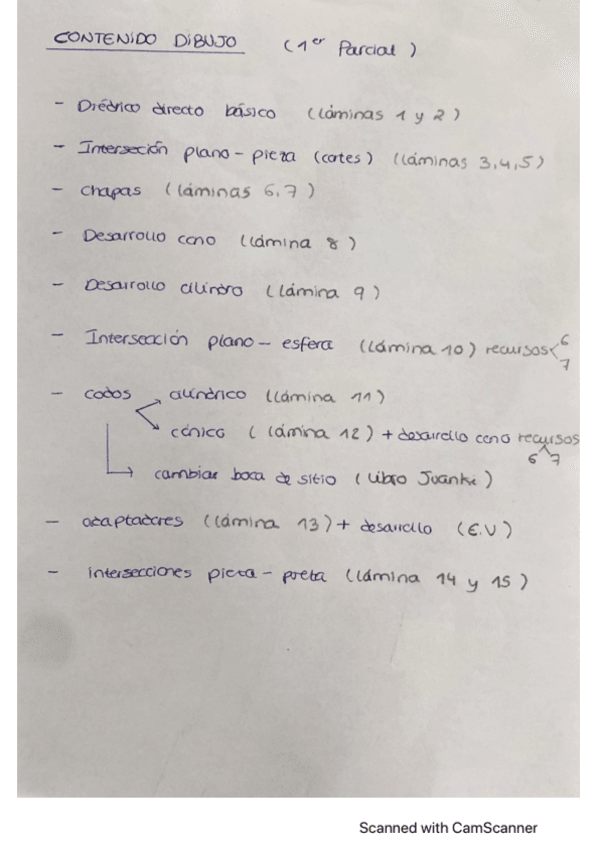 CONTENIDO DIBUJO (1er Parcial)
- Diédrico directo básico (láminas 1 y 2)
- Interseción plano - pieza (cortes) (láminas 3,4,5)
- chapas (láminas 6,7)
- Desarrollo cono (lámina 8)
- Desarrollo cilindro (lámina 9)
- Intersección plano - esfera (lámina 10) recursos < 6 7
- codos cilíndrico (lámina 11)
cónico (lámina 12) + desarrollo cono recursos 6 7
cambiar boca de sitio (libro Juanki)
- adaptadores (lámina 13) + desarrollo (E.V)
- intersecciones pieza - pieza (lámina 14 y 15)
Scanned with CamScanner